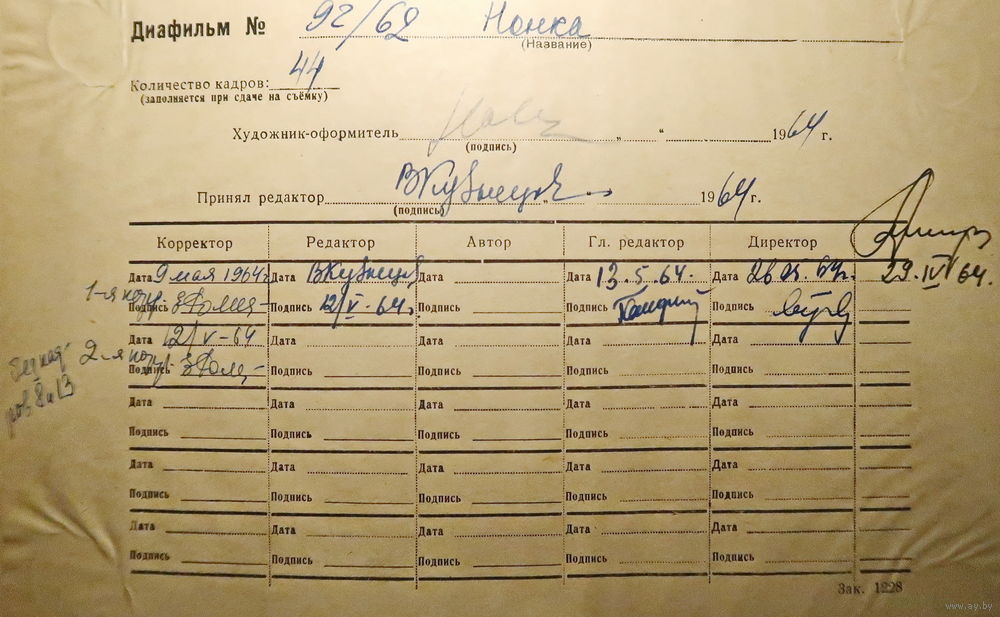 Диафильм № 92/62 Нонка
(Название)
Количество кадров: 44
(заполняется при сдаче на съёмку)
Художник-оформитель „ “ 1964 г.
(подпись)
Принял редактор ВКузнецов 1964 г.
(подпись)
Корректор Редактор Автор Гл. редактор Директор
Дата 9 мая 1964г Дата ВКузнецов Дата Дата 13.5.64. Дата 28.05.64г. 29.IV 64.
1-я корр. Подпись Подпись 12/V-64г. Подпись Подпись Подпись
Дата 12/V-64 Дата Дата Дата Дата
2-я корр. Подпись Подпись Подпись Подпись Подпись
Дата Дата Дата Дата Дата
Подпись Подпись Подпись Подпись Подпись
Дата Дата Дата Дата Дата
Подпись Подпись Подпись Подпись Подпись
Дата Дата Дата Дата Дата
Подпись Подпись Подпись Подпись Подпись
Зак. 1228
www.ay.by